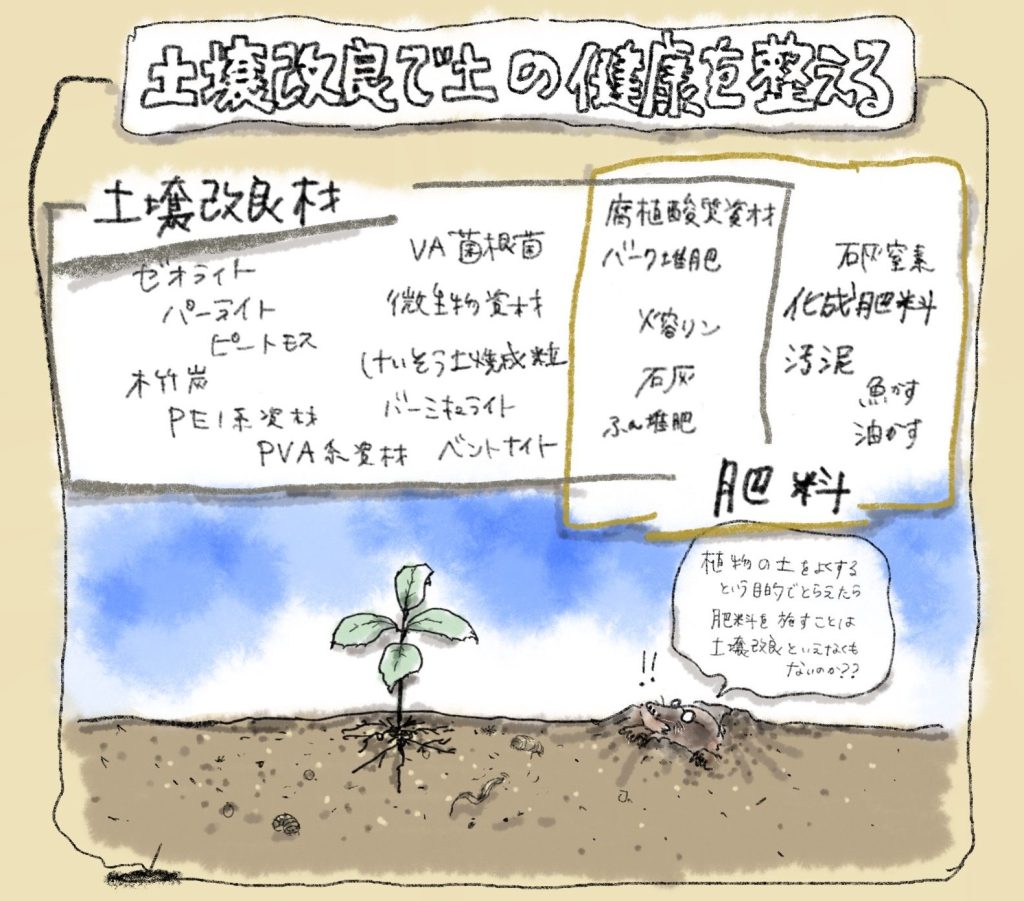 土壌改良で土の健康を整える
土壌改良材
ゼオライト
パーライト
ピートモス
木竹炭
PEI系資材
PVA系資材
VA菌根菌
微生物資材
けいそう土焼成粒
バーミキュライト
ベントナイト
腐植酸質資材
バーク堆肥
石灰
ふん堆肥
石灰窒素
化成肥料
汚泥
魚かす
油かす
肥料
植物の土をよくする
という目的でとらえたら
肥料を施すことは
土壌改良といえなくも
ないのか??
!!